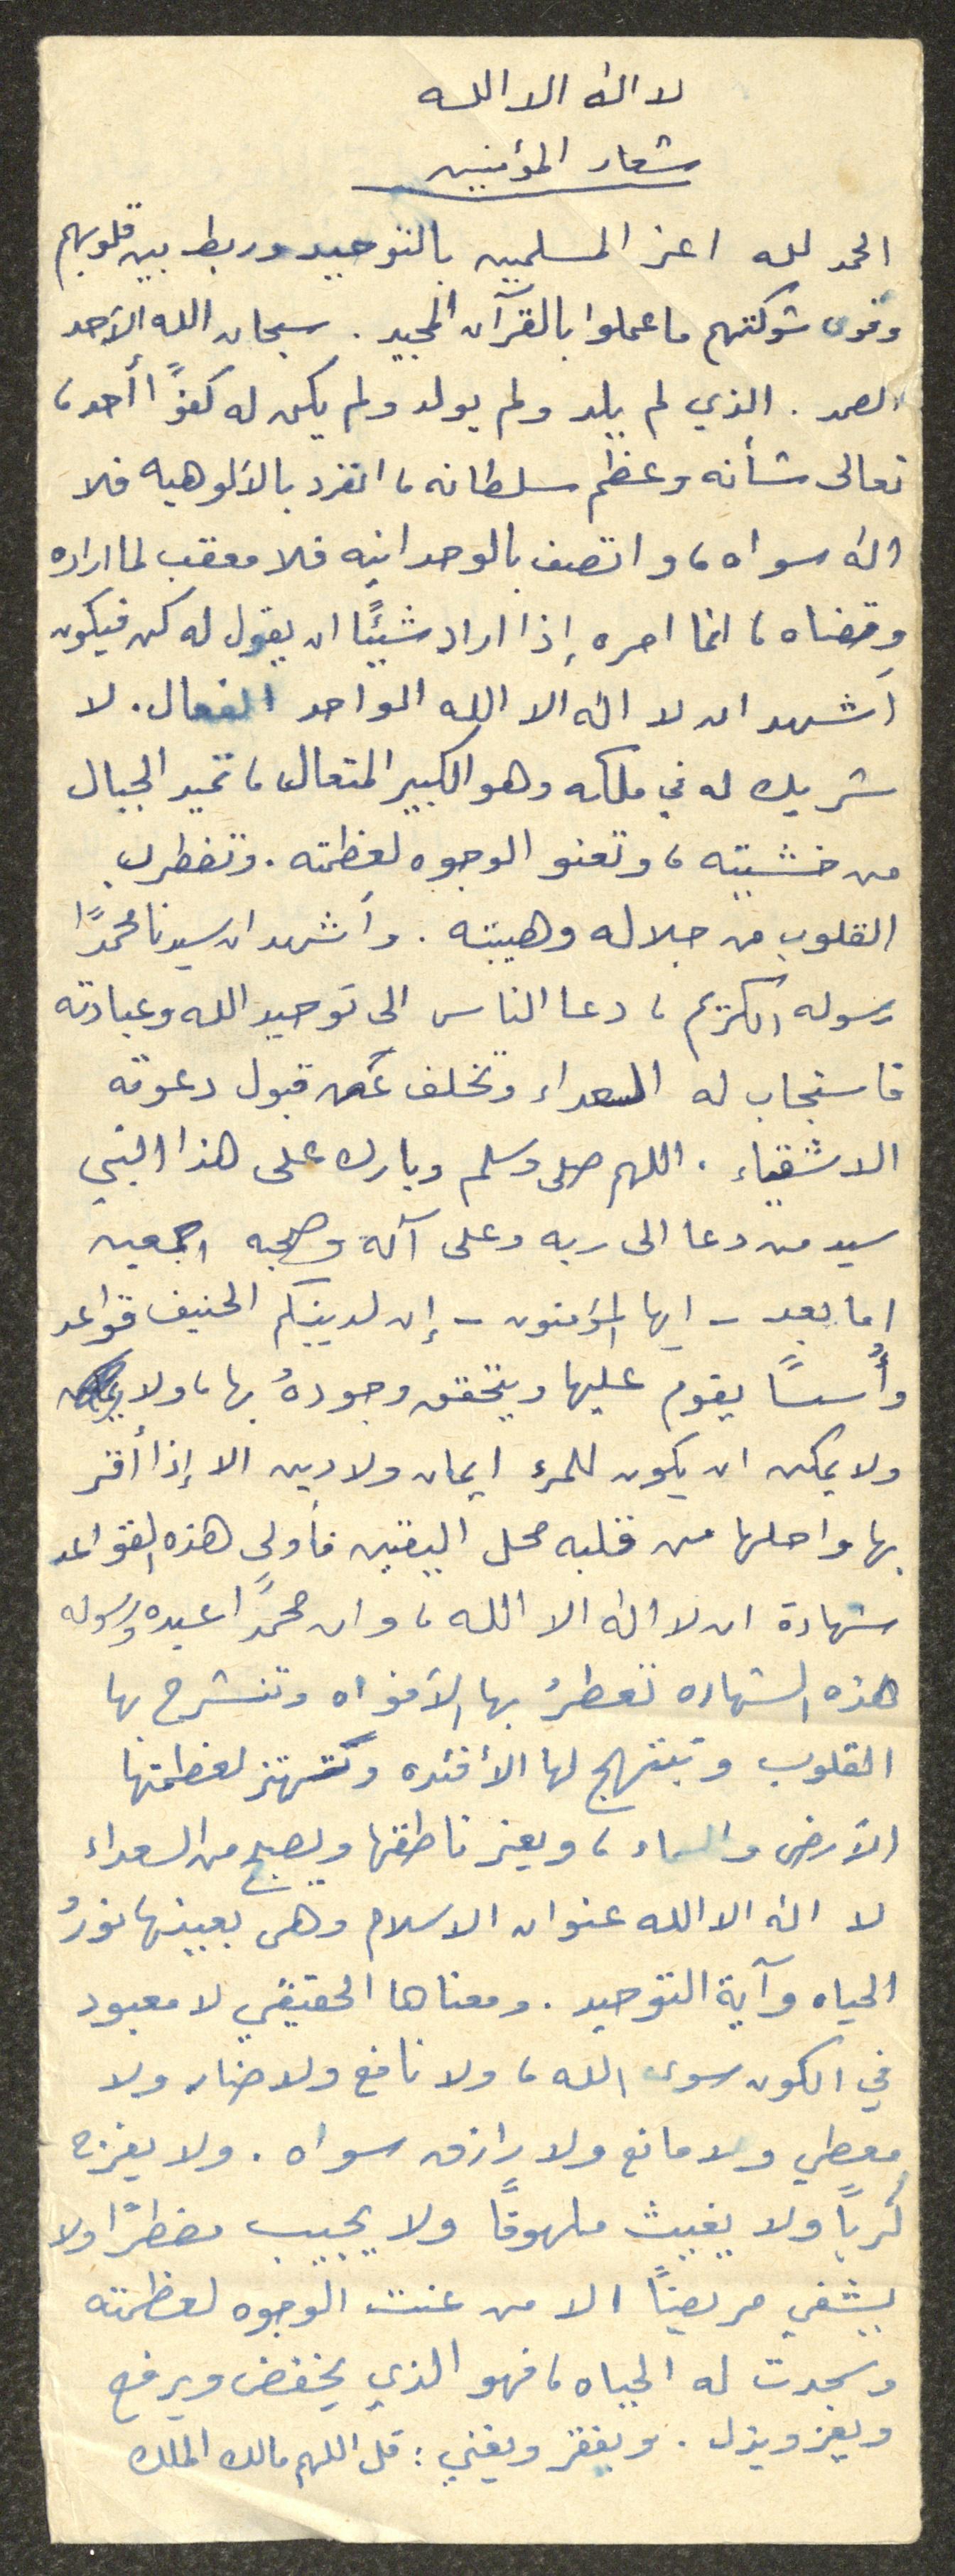 لا اله الا الله
شعار المؤمنين
الحمد لله اعز المسلمين بالتوحيد وربط بين قلوبهم
وقوى شوكتهم ما عملوا بالقرآن المجيد . سبحان الله الأحد
الصمد . الذي لم يلد ولم يولد ولم يكن له كفوًا أحد ،
تعالى شأنه وعظم سلطانه ، انفرد بالألوهيه فلا
اله سواه ، واتصف بالوحدانيه فلا معقب لما اراده
وقضاه ، انما امره إذا اراد شيئًا ان يقول له كن فيكون
أشهد ان لا اله الا الله الواحد الفعال . لا
شريك له في ملكه وهو الكبير المتعال ، تميد الجبال
من خشيته ، وتعنو الوجوه لعظمته . وتضطرب
القلوب من جلاله وهيبته . وأشهد ان سيدنا محمدًا
رسوله الكريم ، دعا الناس الى توحيد الله وعبادته
فاستجاب له السعداء وتخلف عن قبول دعوته
الاشقياء . اللهم صلى وسلم وبارك على هذا النبي
سيد من دعا الى ربه وعلى آله وصحبه اجمعين
اما بعد - ايها المؤمنون - إن لدينكم الحنيف قواعد
وأُسسًا يقوم عليها ويتحقق وجودهُ بها ، ولا يمكن
ولا يمكن ان يكون للمرء ايمان ولا دين الا إذا أقر
بها واحلها من قلبه محل اليقين فأولى هذه القواعد
شهادة ان لا اله الا الله ، وان محمدًا عبده ورسوله
هذه الشهاده تعطرُ بها الأفواه وتنشرح بها
القلوب وتبتهج لها الأفئده وتهتز لعظمتها
الأرض والسماء ، ويعز ناطقها ويصبح من السعداء
لا اله الا الله عنوان الاسلام وهى بعينها نورُ
الحياه وآية التوحيد . ومعناها الحقيقي لا معبود
في الكون سوى الله ، ولا نافع ولا ضار ولا
معطي ولا مانع ولا رازق سواه . ولا يفرج
كربًا ولا يغيث ملهوفًا ولا يجيب مضطرًا ولا
يشفي مريضًا الا من عنت الوجوه لعظمته
وسجدت له الجباه ، فهو الذي يخفض ويرفع
ويعز ويذل . ويفقر ويغني : قل اللهم مالك الملك